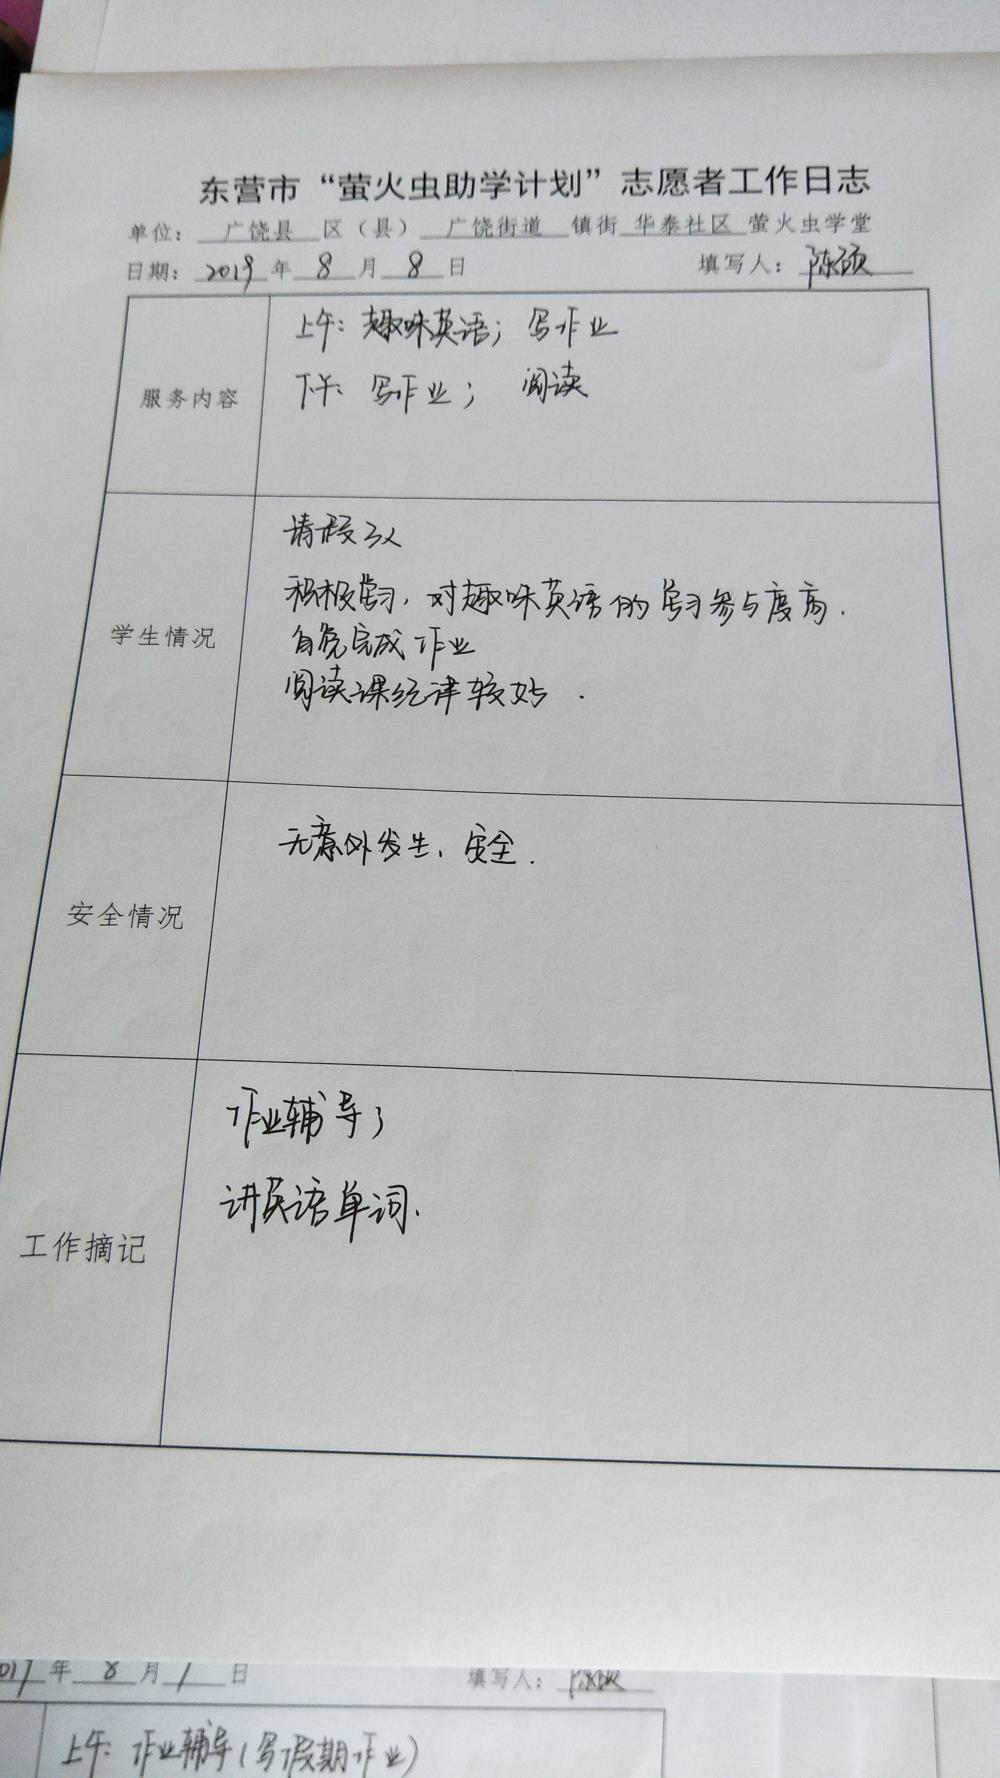 东营市“萤火虫助学计划”志愿者工作日志
单位： 广饶县 区（县） 广饶街道 镇街 华泰社区 萤火虫学堂
日期： 2019 年 8 月 8 日 填写人： 陈硕
服务内容
上午：趣味英语；写作业
下午：写作业； 阅读
学生情况
请假3人
积极学习，对趣味英语的学习参与度高．
自觉完成作业
阅读课纪律较好．
安全情况
无意外发生，安全．
工作摘记
作业辅导；
讲英语单词．
年 8 月 1 日 填写人：
上午：作业辅导（写假期作业）